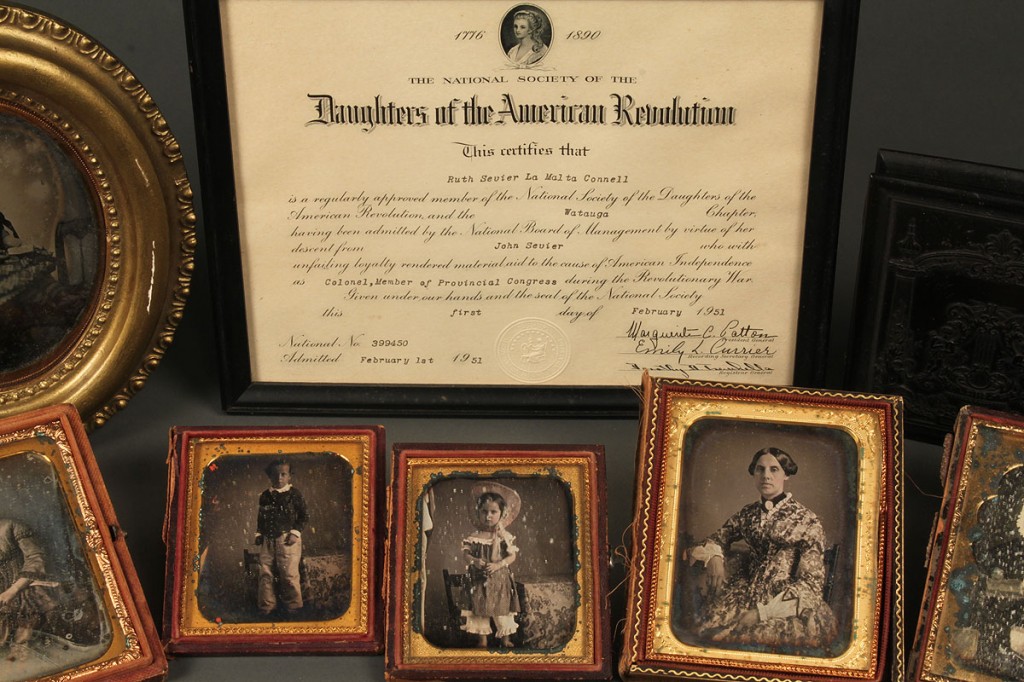 1776 1890
THE NATIONAL SOCIETY OF THE
Daughters of the American Revolution
This certifies that
Ruth Sevier La Malta Connell
is a regularly approved member of the National Society of the Daughters of the
American Revolution, and the Watauga Chapter,
having been admitted by the National Board of Management by virtue of her
descent from John Sevier who with
unfailing loyalty rendered material aid to the cause of American Independence
as Colonel, Member of Provincial Congress during the Revolutionary War.
Given under our hands and the seal of the National Society
this first day of February 1951
Marguerite C. Patton
President General
National No. 399450
Emily L. Currier
Recording Secretary General
Admitted February 1st 1951
Registrar General